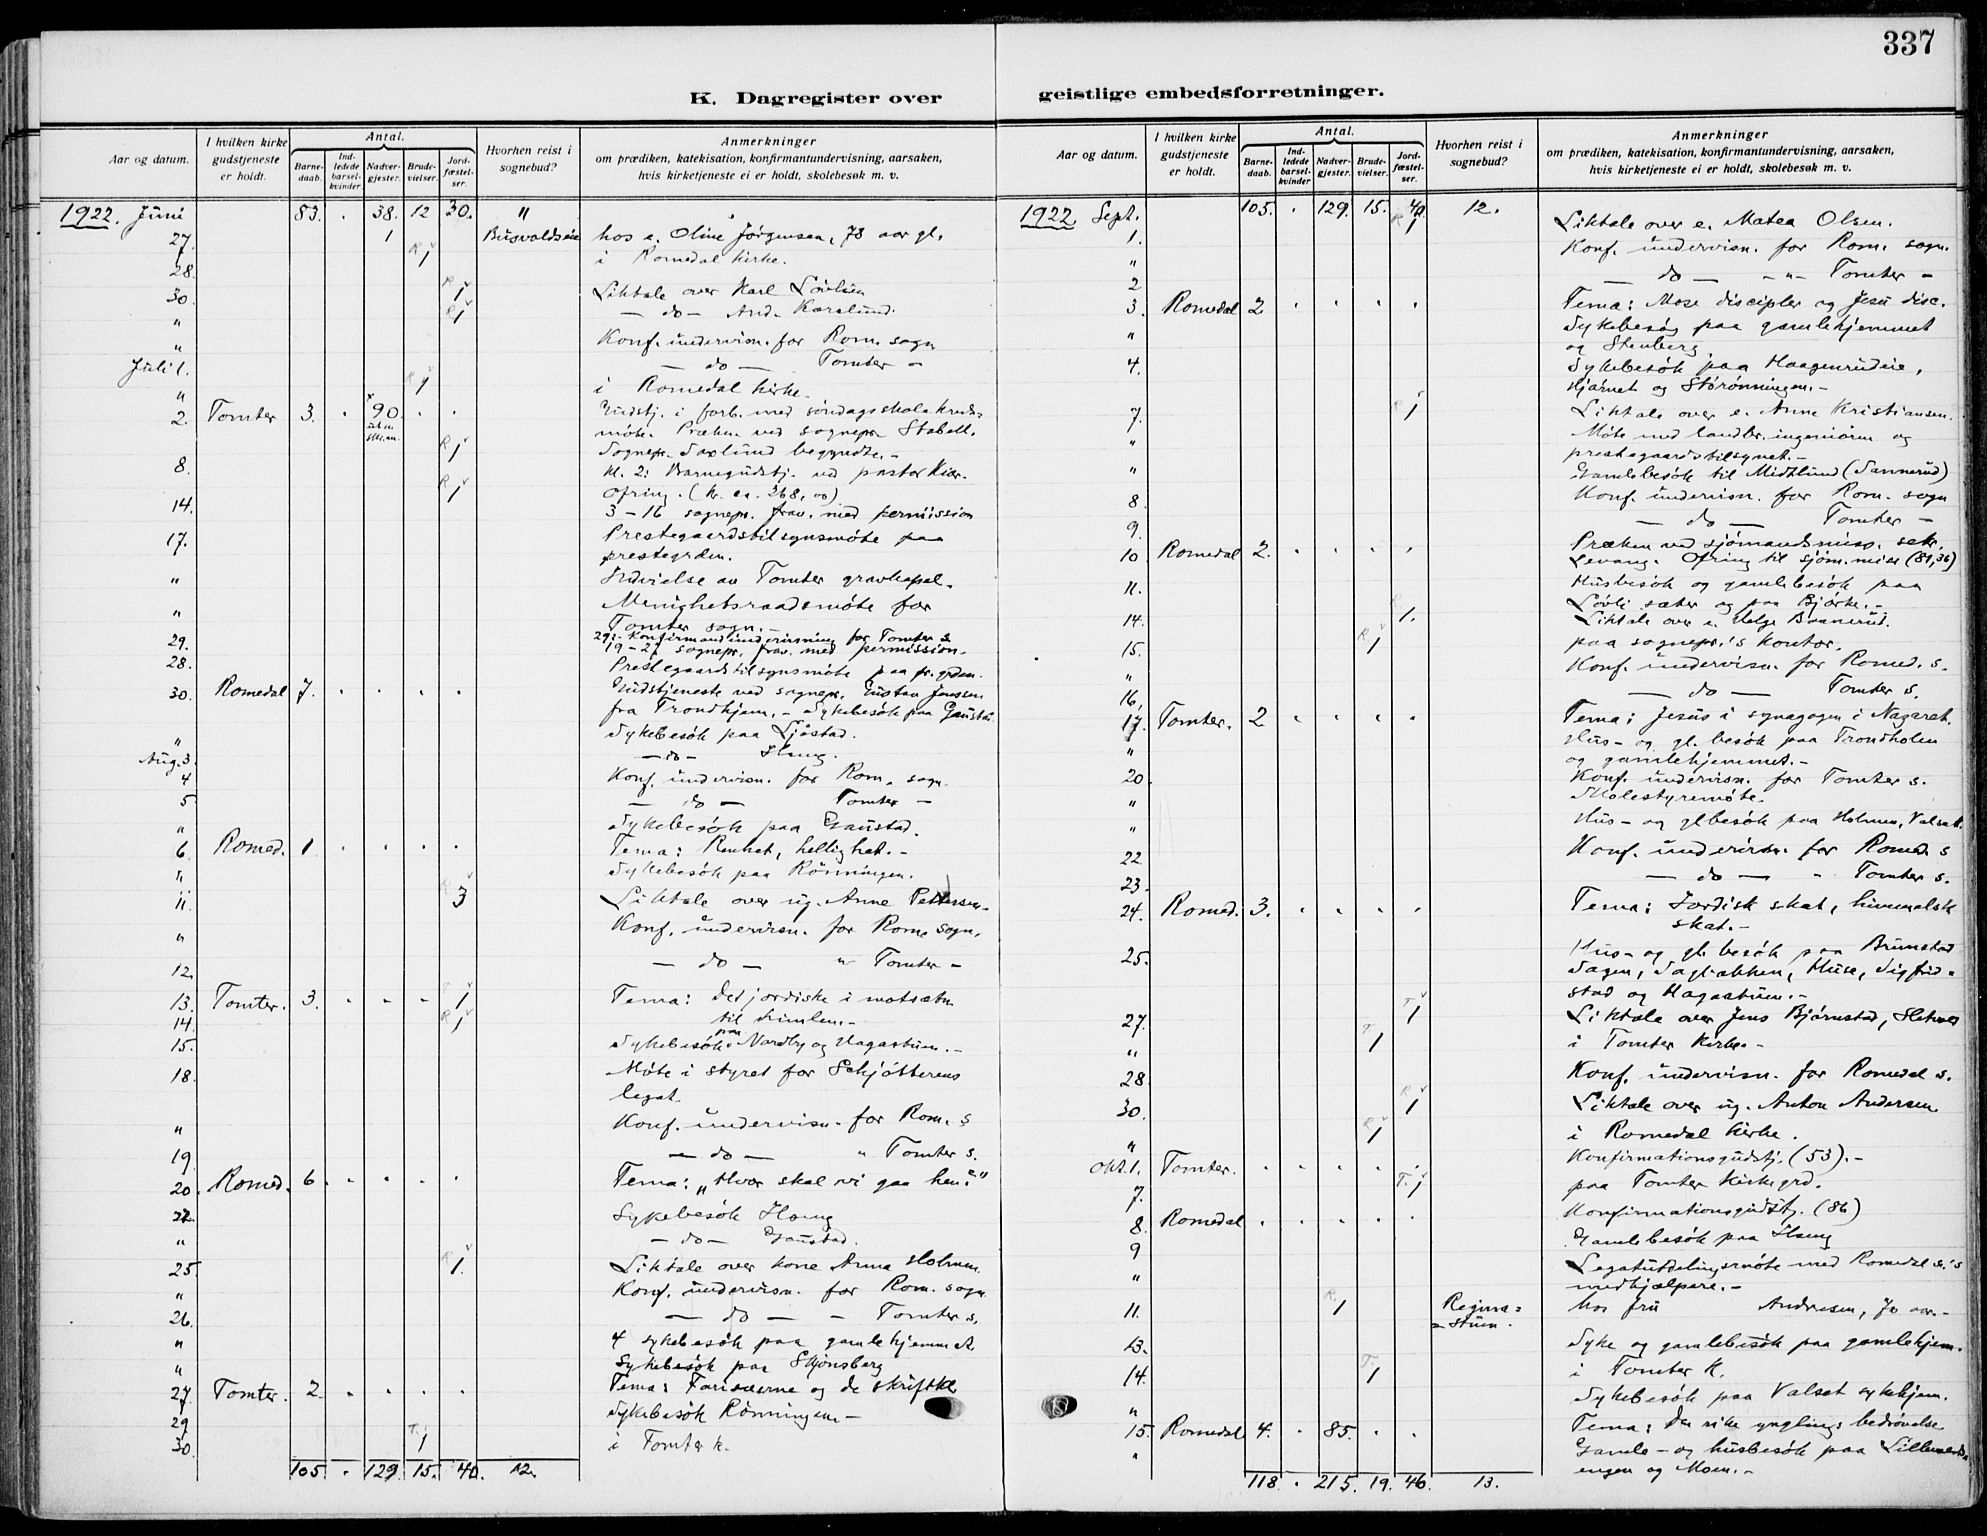 337
K. Dagregister over geistlige embedsforretninger.
Aar og datum. I hvilken kirke gudstjeneste er holdt. Antal. Barnedaab. Indledede barselkvinder Nadvergjester. Brudevielser. Jordfæstelser. Hvorhen reist i sognebud? Anmerkninger om prædiken, katekisation, konfirmantundervisning, aarsaken, hvis kirketjeneste ei er holdt, skolebesøk m. v.
1922. Juni 83. . 38. 12 30. "
27. 1 Busvoldseie hos e. Oline Jørgensen, 78 aar gl.
28. R 1 i Romedal kirke.
30. R 1 Liktale over Karl Løvlien
" R 1 — do — And. Karslund.
" Konf. undervisn. for Rom. sogn
Juli 1. — do — Tomter –
" R 1 i Romedal kirke.
2. Tomter 3. . 90. . . Gudstj. i forb. med søndagsskolekreds-
møte. Præken ved sognepr. Stabell.
R 1 Sognepr. Saxlund begyndte.-
8. kl. 2: Barnegudstj. ved pastor Kiær.
R 1 Ofring. (kr. ca. 268,00)
14. 3 – 16 sognepr. frav. med permission
17. Prestegaardstilsynsmøte paa
prestegrden.
" Indvielse av Tomter gravkapel.
" Menighetsraadsmøte for
Tomter sogn.-
29. 29:- Konfirmandundervisning for Tomter s.
19 – 27 sognepr. frav. med permission.
28. Prestegaardstilsynsmøte paa pr.grden.
30. Romedal 7. . . . . Gudstjeneste ved sognepr. Gustav Jenssen
fra Trondhjem. - Sykebesøk paa Gaustad
" Sykebesøk paa Ljøstad.
Aug. 3. — do — Ilseng.
4 Konf. undervisn. for Rom. sogn.
5 — do — Tomter –
" Sykebesøk paa Gaustad.
6. Romed. 1 . . . . Tema: Renhet, hellighet.-
" Sykebesøk paa Rønningen.
11. R 3 Liktale over ug. Anne Pettersen.
" Konf. undervisn. for Rom. sogn.
12. — do — " Tomter –
13. Tomter. 3. - - - T 1 Tema: Det jordiske i motsætn.
14. R 1 til himlen.-
15. Sykebesøk paa Nordby og Hagastuen.-
18. Møte i styret for Schjøtterens
legat.
" Konf. undervisn. for Rom. s
19. — do — " Tomter s.
20. Romed. 6. . . . . Tema: „Hvor skal vi gaa hen?"
22. Sykebesøk Ilseng
" — do — Gaustad.
25. R 1. Liktale over kone Anna Holmen.
" Konf. undervisn. for Rom. sogn
26. — do — – Tomter s.
" 4 sykebesøk paa gamlehjemmet.
" Sykebesøk paa Skjønsberg
27. Tomter. 2. . . . . Tema: Farisæerne og de skriftkl
29 Sykebesøk Rønningen –
30. T. 1 i Tomter k.
105 . 129. 15. 40. 12.
Aar og datum. I hvilken kirke gudstjeneste er holdt. Antal. Barnedaab. Indledede barselkvinder Nadvergjester. Brudevielser. Jordfæstelser. Hvorhen reist i sognebud? Anmerkninger om prædiken, katekisation, konfirmantundervisning, aarsaken, hvis kirketjeneste ei er holdt, skolebesøk m. v.
1922. Sept. 105. . 129. 15. 40. 12.
1. R 1 Liktale over e. Matea Olsen.
" Konf. undervisn. for Rom. sogn.
2 — do — – " – Tomter –
3. Romedal 2. . . . . Tema: Mose discipler og Jesu disc.
" Sykebesøg paa gamlehjemmet
og Stenberg
4. Sykebesøk paa Haagenrudeie,
Hjarnet og Størønningen.-
7. R 1 Liktale over e. Anne Kristiansen.
" Møte med landbr.ingeniøren og
prestegaardstilsynet.-
" Gamlebesøk til Midtlund (Sannerud)
8. Konf. undervisn. for Rom. sogn
9. — do — Tomter –
10 Romedal 2. . . . . Præken ved sjømandsmiss. sekr.
Levang. Ofring til sjøm.mis. (81,36)
11. Husbesøk og gamlebesøk paa
Løvli sæter og paa Bjørke.-
14. R 1. Liktale over e. Helge Baanerud.
15. R. 1 paa sognepr.'s kontor.
" Konf. undervisn. for Romed. s.
16. — do — Tomter s.
17. Tomter. 2 . . . . Tema: Jesus i synagogen i Nazaret.
" Hus- og gl. besøk paa Trondholen
og gamlehjemmet.-
20. Konf. undervisn. for Tomter s.
" Skolestyremøte.
" Hus- og gl besøk paa Holmen, Valset.
22. Konf. undervisn. for Romed. s
23. — do — " Tomter s.
24. Romed. 3. . . . . Tema: Jordisk skat, himmelsk
skat.-
25. Hus- og gl. besøk paa Brunstad
Sagen, Sagbakken, Huse, Sigfrid-
stad og Hagastuen.-
27. T. 1 Liktale over Jens Bjørnstad,
" T. 1 i Tomter kirke.-
28. Konf. undervisn. for Romedal s.
30. R 1 Liktale over ug. Anton Andersen
" R 1 i Romedal kirke.
Okt. 1. Tomter. . . . . . Konfirmationsgudstj. (53).-
7. T. 1 paa Tomter kirkegrd.
8. Romedal . . . . . Konfirmationsgudstj. (86)
9 Gamlebesøk paa Ilseng
" Legatutdelingsmøte med Romedal s.'s
medhjælpere.-
11. R. 1 Regina-
stuen. hos fru Andresen, 70 aar.-
13. Syke og gamlebesøk paa gamlehjem.
14. T. 1 i Tomter k.
" Sykebesøk paa Valset sykehjem.
15. Romedal 4. . 85. . . Tema: Den rike ynglings bedrøvelse
" Gamle- og husbesøk paa
engen og Moen.-
118. . 215. 19. 46. 13.